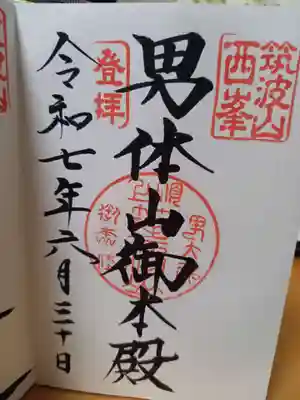 筑波山
西峯
男体山御本殿
登拝
令和七年六月三十日